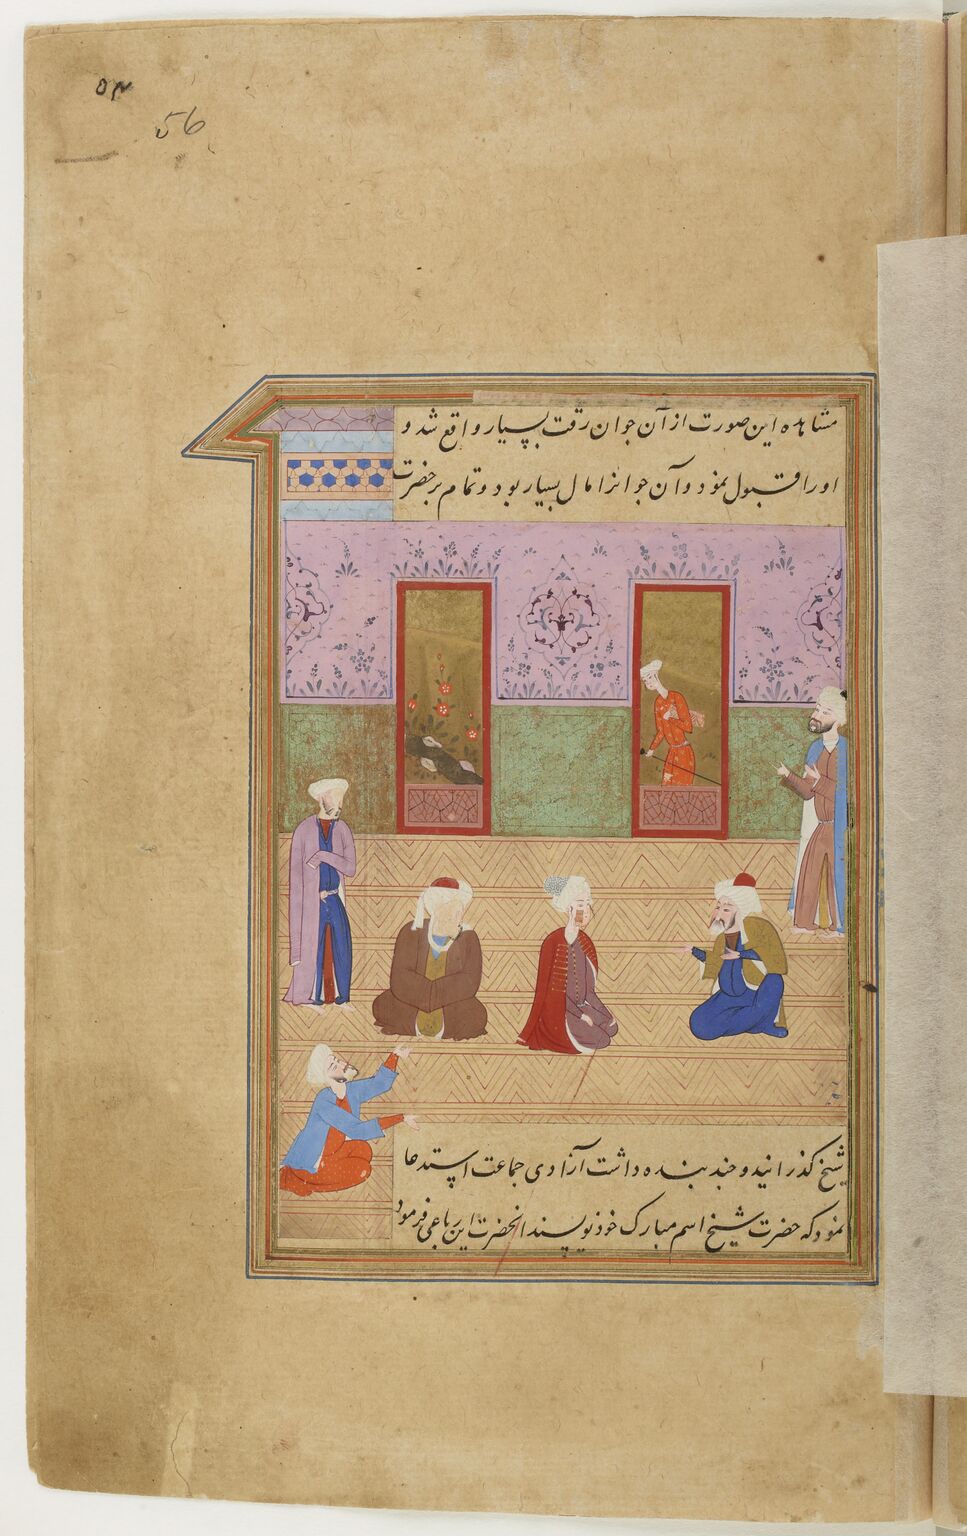 ۵۳
56
مشاهده این صورت از آن جوان رقت بسیار واقع شد و
او را قبول نمود و آن جوانرا مال بسیار بود و تمام بر حضرت
شیخ گذرانید و چند بنده داشت آزادی جماعت استدعا
نمود که حضرت شیخ اسم مبارک خود نویسند آنحضرت این رباعی فرمود